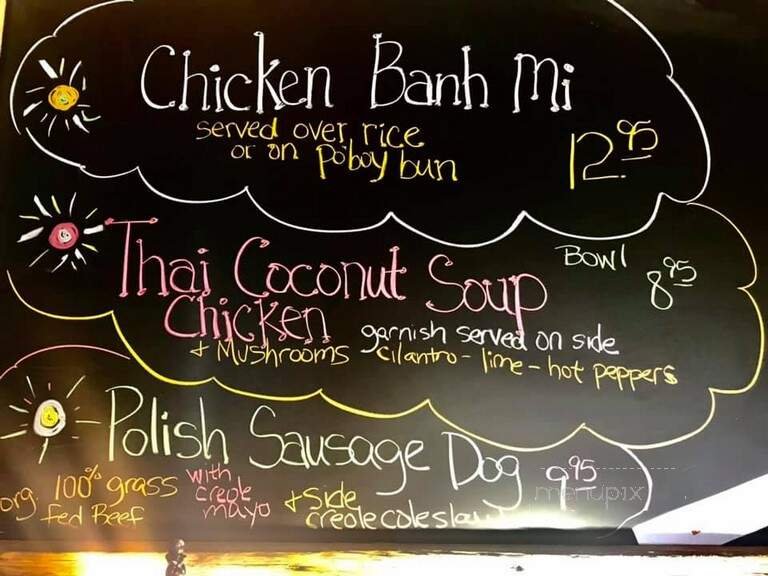 Chicken Banh Mi
served over rice
or on po'boy bun
12.95
Thai Coconut Soup
Chicken
+ Mushrooms
Bowl
8.95
garnish served on side
cilantro - lime - hot peppers
Polish Sausage Dog 9.95
org. 100% grass
fed Beef
with
creole
mayo
+ side
creole coleslaw
menupix